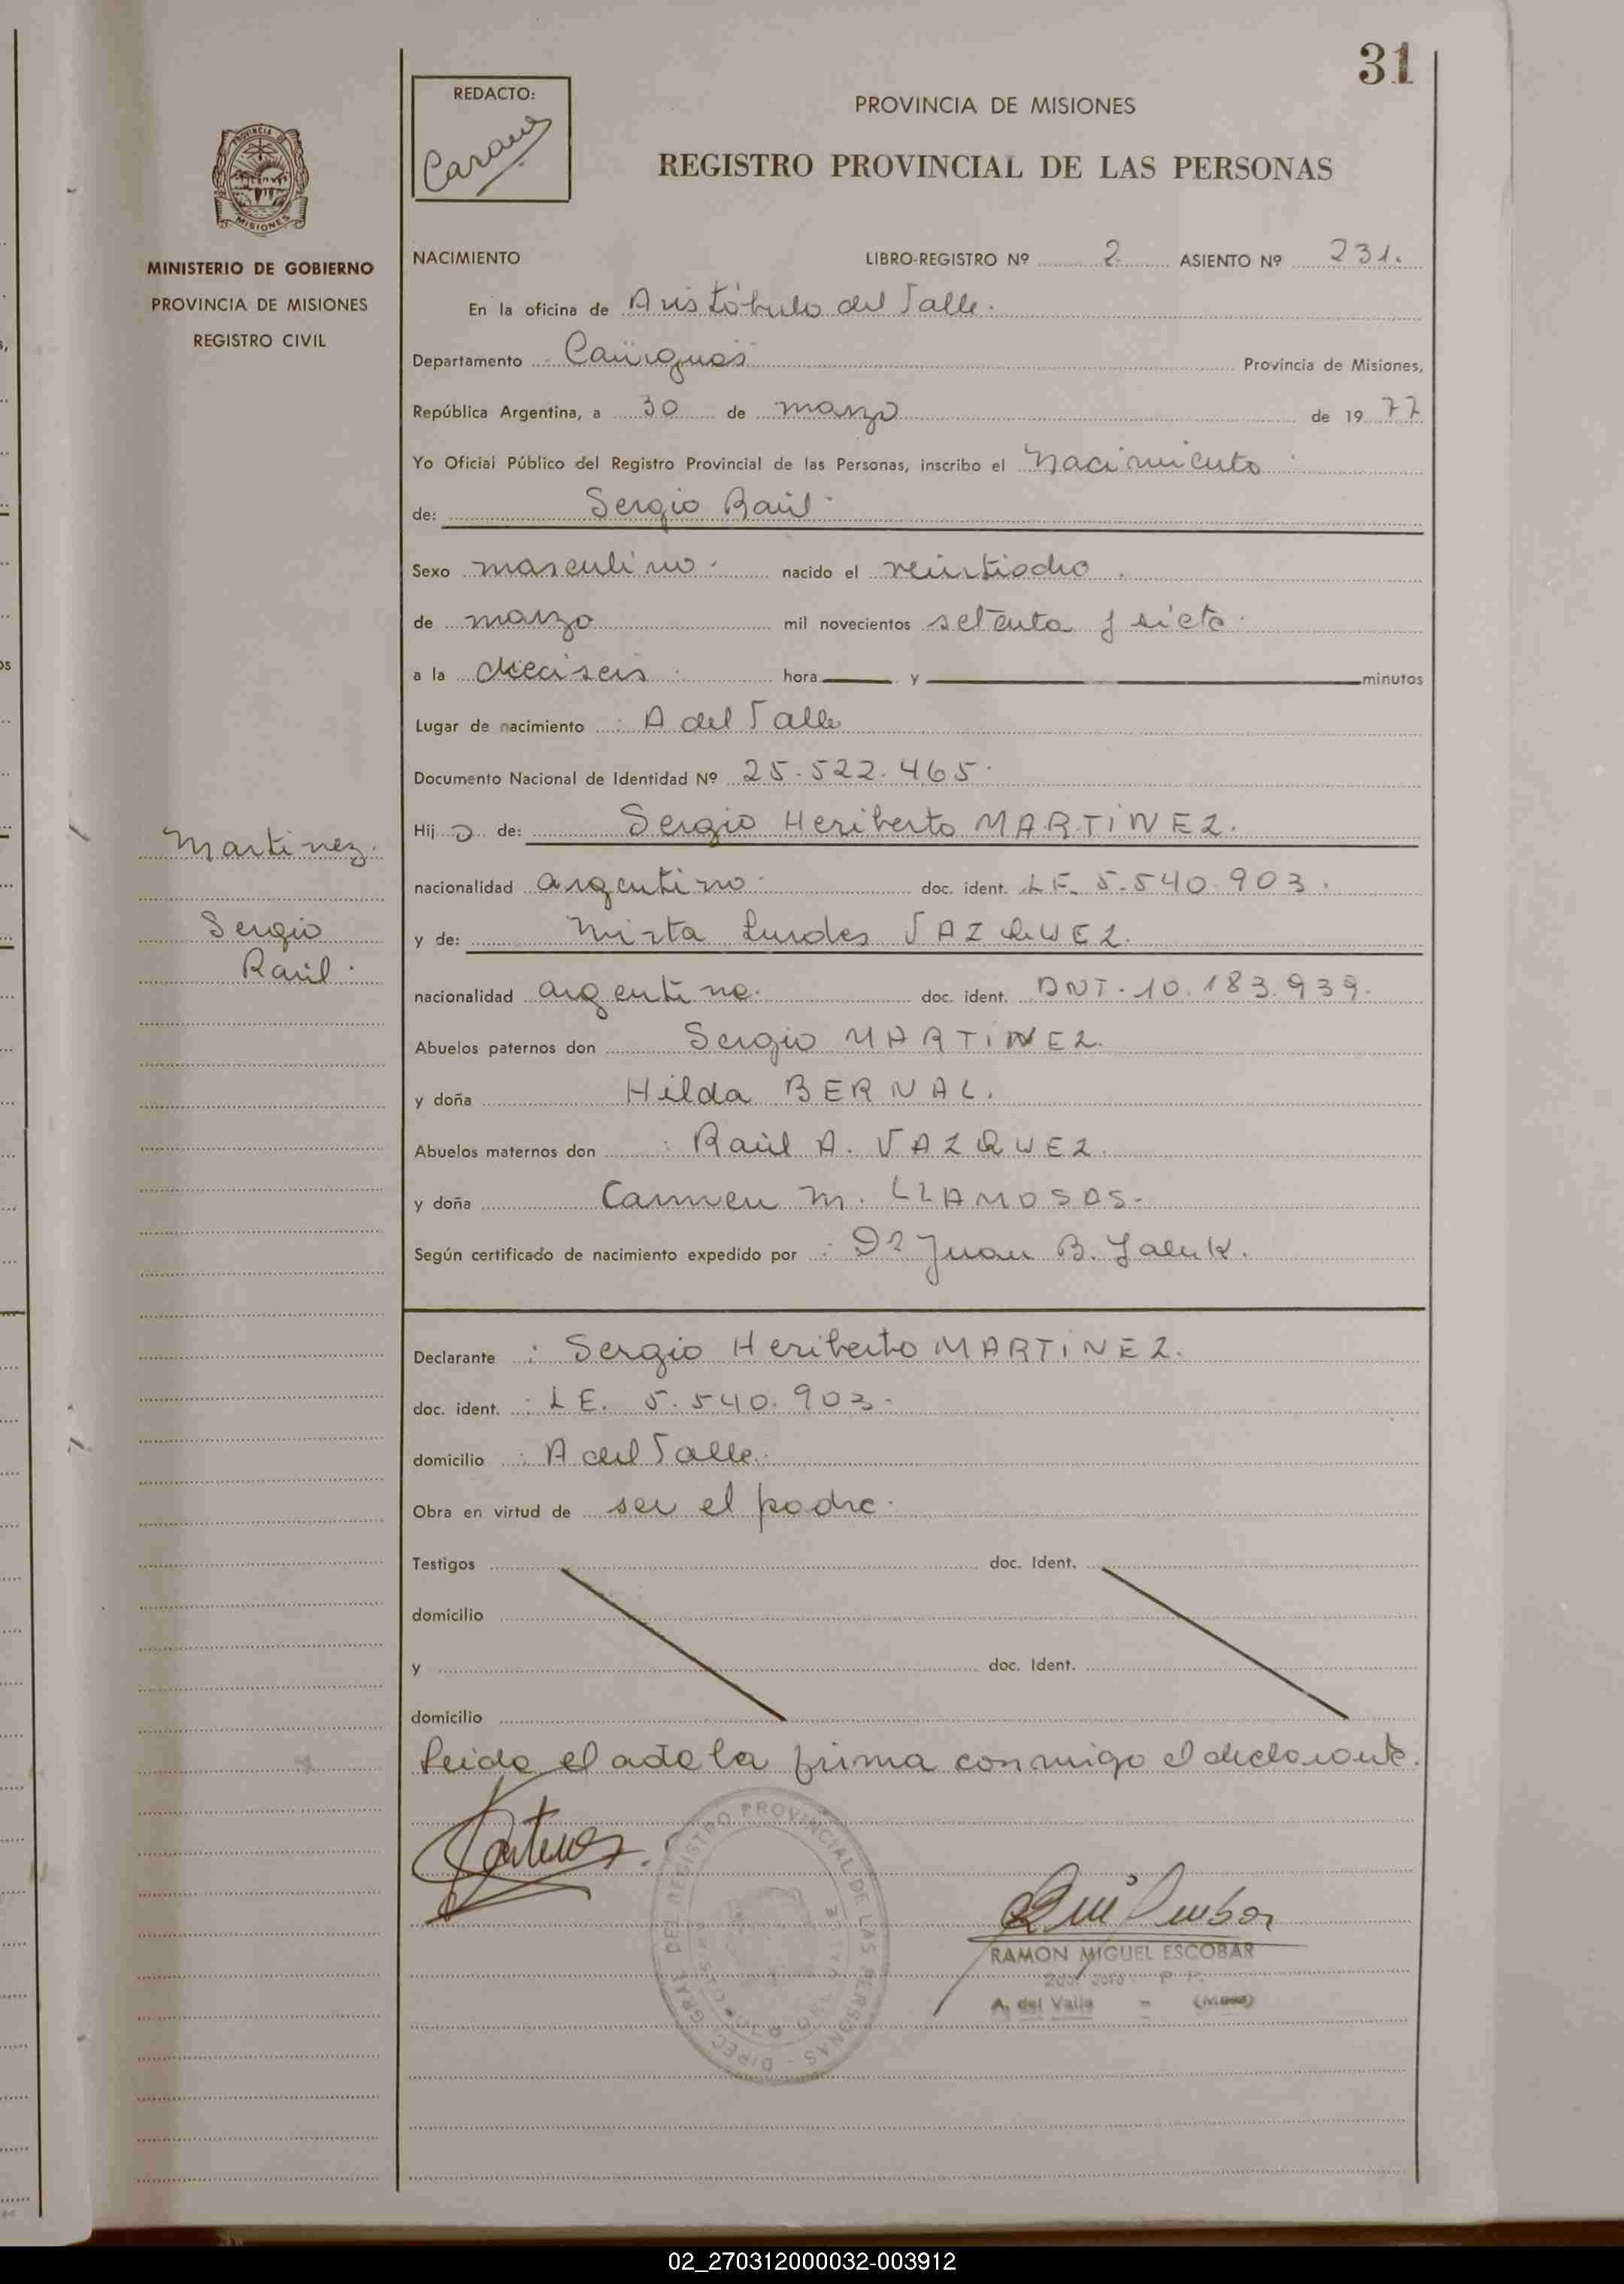 31
REDACTO:
PROVINCIA DE MISIONES
REGISTRO PROVINCIAL DE LAS PERSONAS
PROVINCIA DE
MISIONES
MINISTERIO DE GOBIERNO
PROVINCIA DE MISIONES
REGISTRO CIVIL
NACIMIENTO LIBRO-REGISTRO Nº 2 ASIENTO Nº 231.
En la oficina de Aristóbulo del Valle.
Departamento Caiñguás Provincia de Misiones,
República Argentina, a 30 de marzo de 1977
Yo Oficial Público del Registro Provincial de las Personas, inscribo el nacimiento
de: Sergio Raúl
Sexo masculino. nacido el veintiocho.
de marzo mil novecientos setenta y siete.
a la dieciseis hora y minutos
Lugar de nacimiento : A del Valle
Documento Nacional de Identidad Nº 25.522.465.
Hijo de: Sergio Heriberto MARTINEZ.
nacionalidad argentino. doc. ident. LE. 5.540.903.
y de: Mirta Lurdes VAZQUEZ.
nacionalidad argentina. doc. ident. DNI. 10.183.939.
Abuelos paternos don Sergio MARTINEZ.
y doña Hilda BERNAL.
Abuelos maternos don : Raúl A. VAZQUEZ.
y doña Carmen M. LLAMOSAS.
Según certificado de nacimiento expedido por : Dr Juan B.
Martinez.
Sergio
Raúl.
Declarante : Sergio Heriberto MARTINEZ.
doc. ident. : LE. 5.540.903.
domicilio : A del Valle.
Obra en virtud de ser el padre.
Testigos doc. Ident.
domicilio
y doc. Ident.
domicilio
Leido el acta la firma conmigo el declarante.
DIREC. GRAL. DEL REGISTRO PROVINCIAL DE LAS PERSONAS
RAMON MIGUEL ESCOBAR
A. del Valle - (Mnes)
02_270312000032-003912